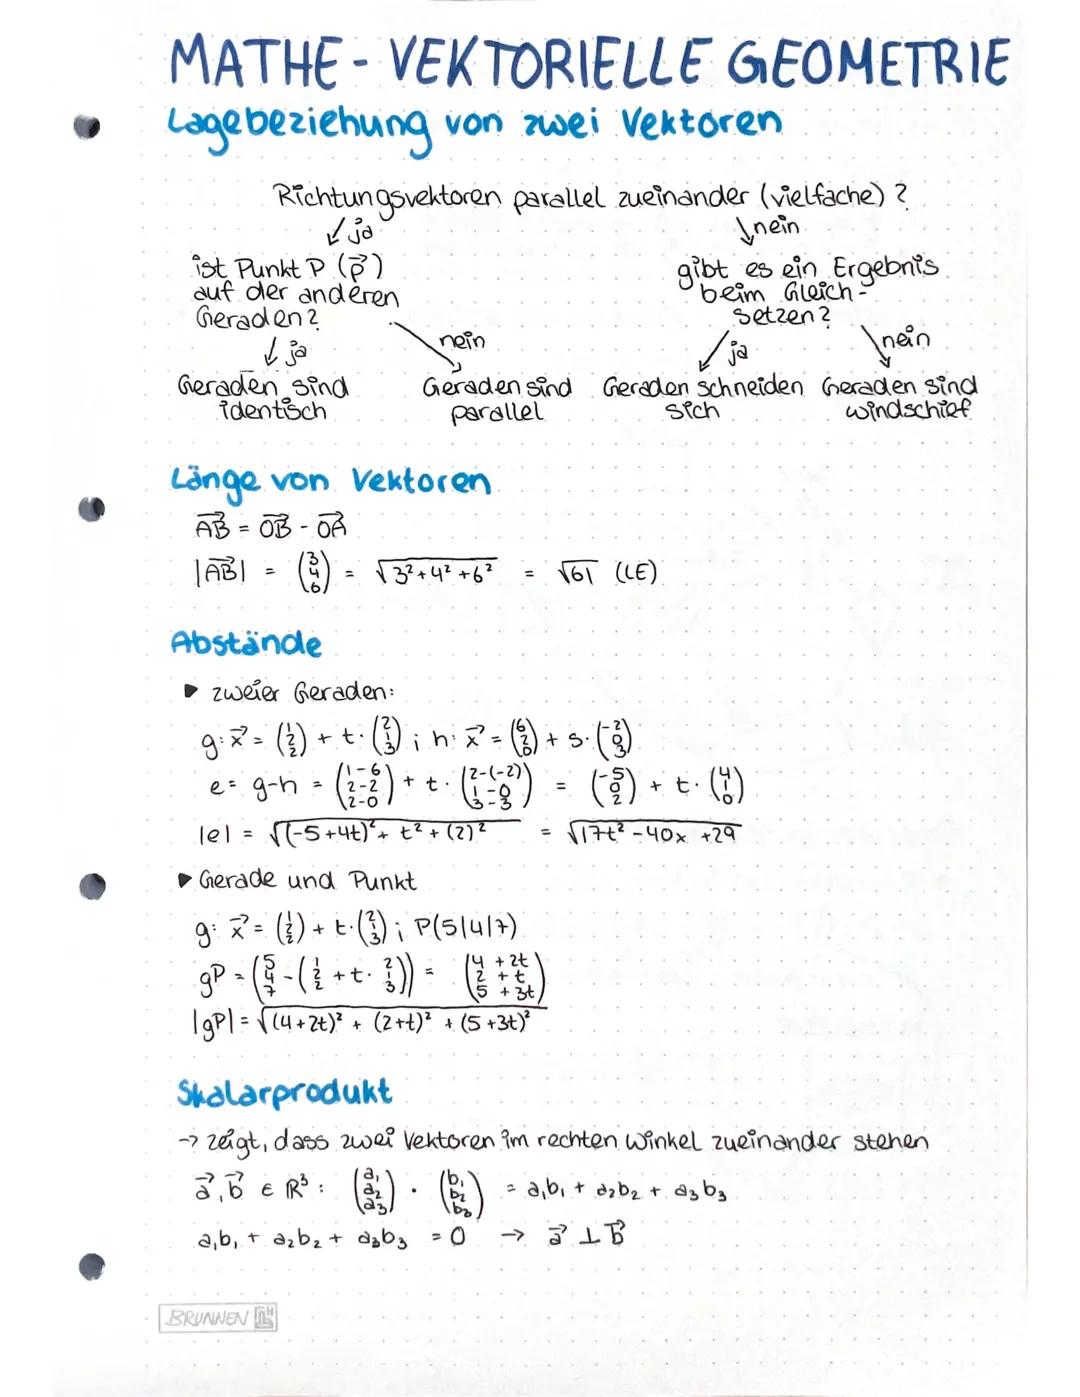 MATHE - VEKTORIELLE GEOMETRIE
Lagebeziehung von zwei Vektoren
Richtungsvektoren parallel zueinander (vielfache) ?
↙ ja
↘ nein
ist Punkt P (p⃗)
auf der anderen
Geraden?
gibt es ein Ergebnis
beim Gleich-
setzen?
↙ ja
↘ nein
↙ ja
↘ nein
Geraden sind
identisch
Geraden sind
parallel
Geraden schneiden
sich
Geraden sind
windschief
Länge von Vektoren
A͞B⃗ = OB⃗ - OA⃗
|AB⃗| = (3 4 6) = √(3²+4²+6²) = √61 (LE)
Abstände
▶ zweier Geraden:
g: x⃗ = (1 2 2) + t · (2 1 3) ; h: x⃗ = (6 2 0) + s · (-2 0 3)
e = g-h = (1-6 2-2 2-0) + t · (2-(-2) 1-0 3-3) = (-5 0 2) + t · (4 1 0)
|e| = √((-5+4t)² + t² + (2)²) = √(17t² - 40x + 29)
▶ Gerade und Punkt
g: x⃗ = (1 2 2) + t · (2 1 3) ; P(5|4|7)
gP = (5 4 7 - (1 2 2 + t · 2 1 3)) = (4 + 2t 2 + t 5 + 3t)
|gP| = √((4+2t)² + (2+t)² + (5+3t)²)
Skalarprodukt
→ zeigt, dass zwei Vektoren im rechten Winkel zueinander stehen
a⃗, b⃗ ∈ ℝ³ : (a₁ a₂ a₃) · (b₁ b₂ b₃) = a₁b₁ + a₂b₂ + a₃b₃
a₁b₁ + a₂b₂ + a₃b₃ = 0 → a⃗ ⊥ b⃗
BRUNNEN